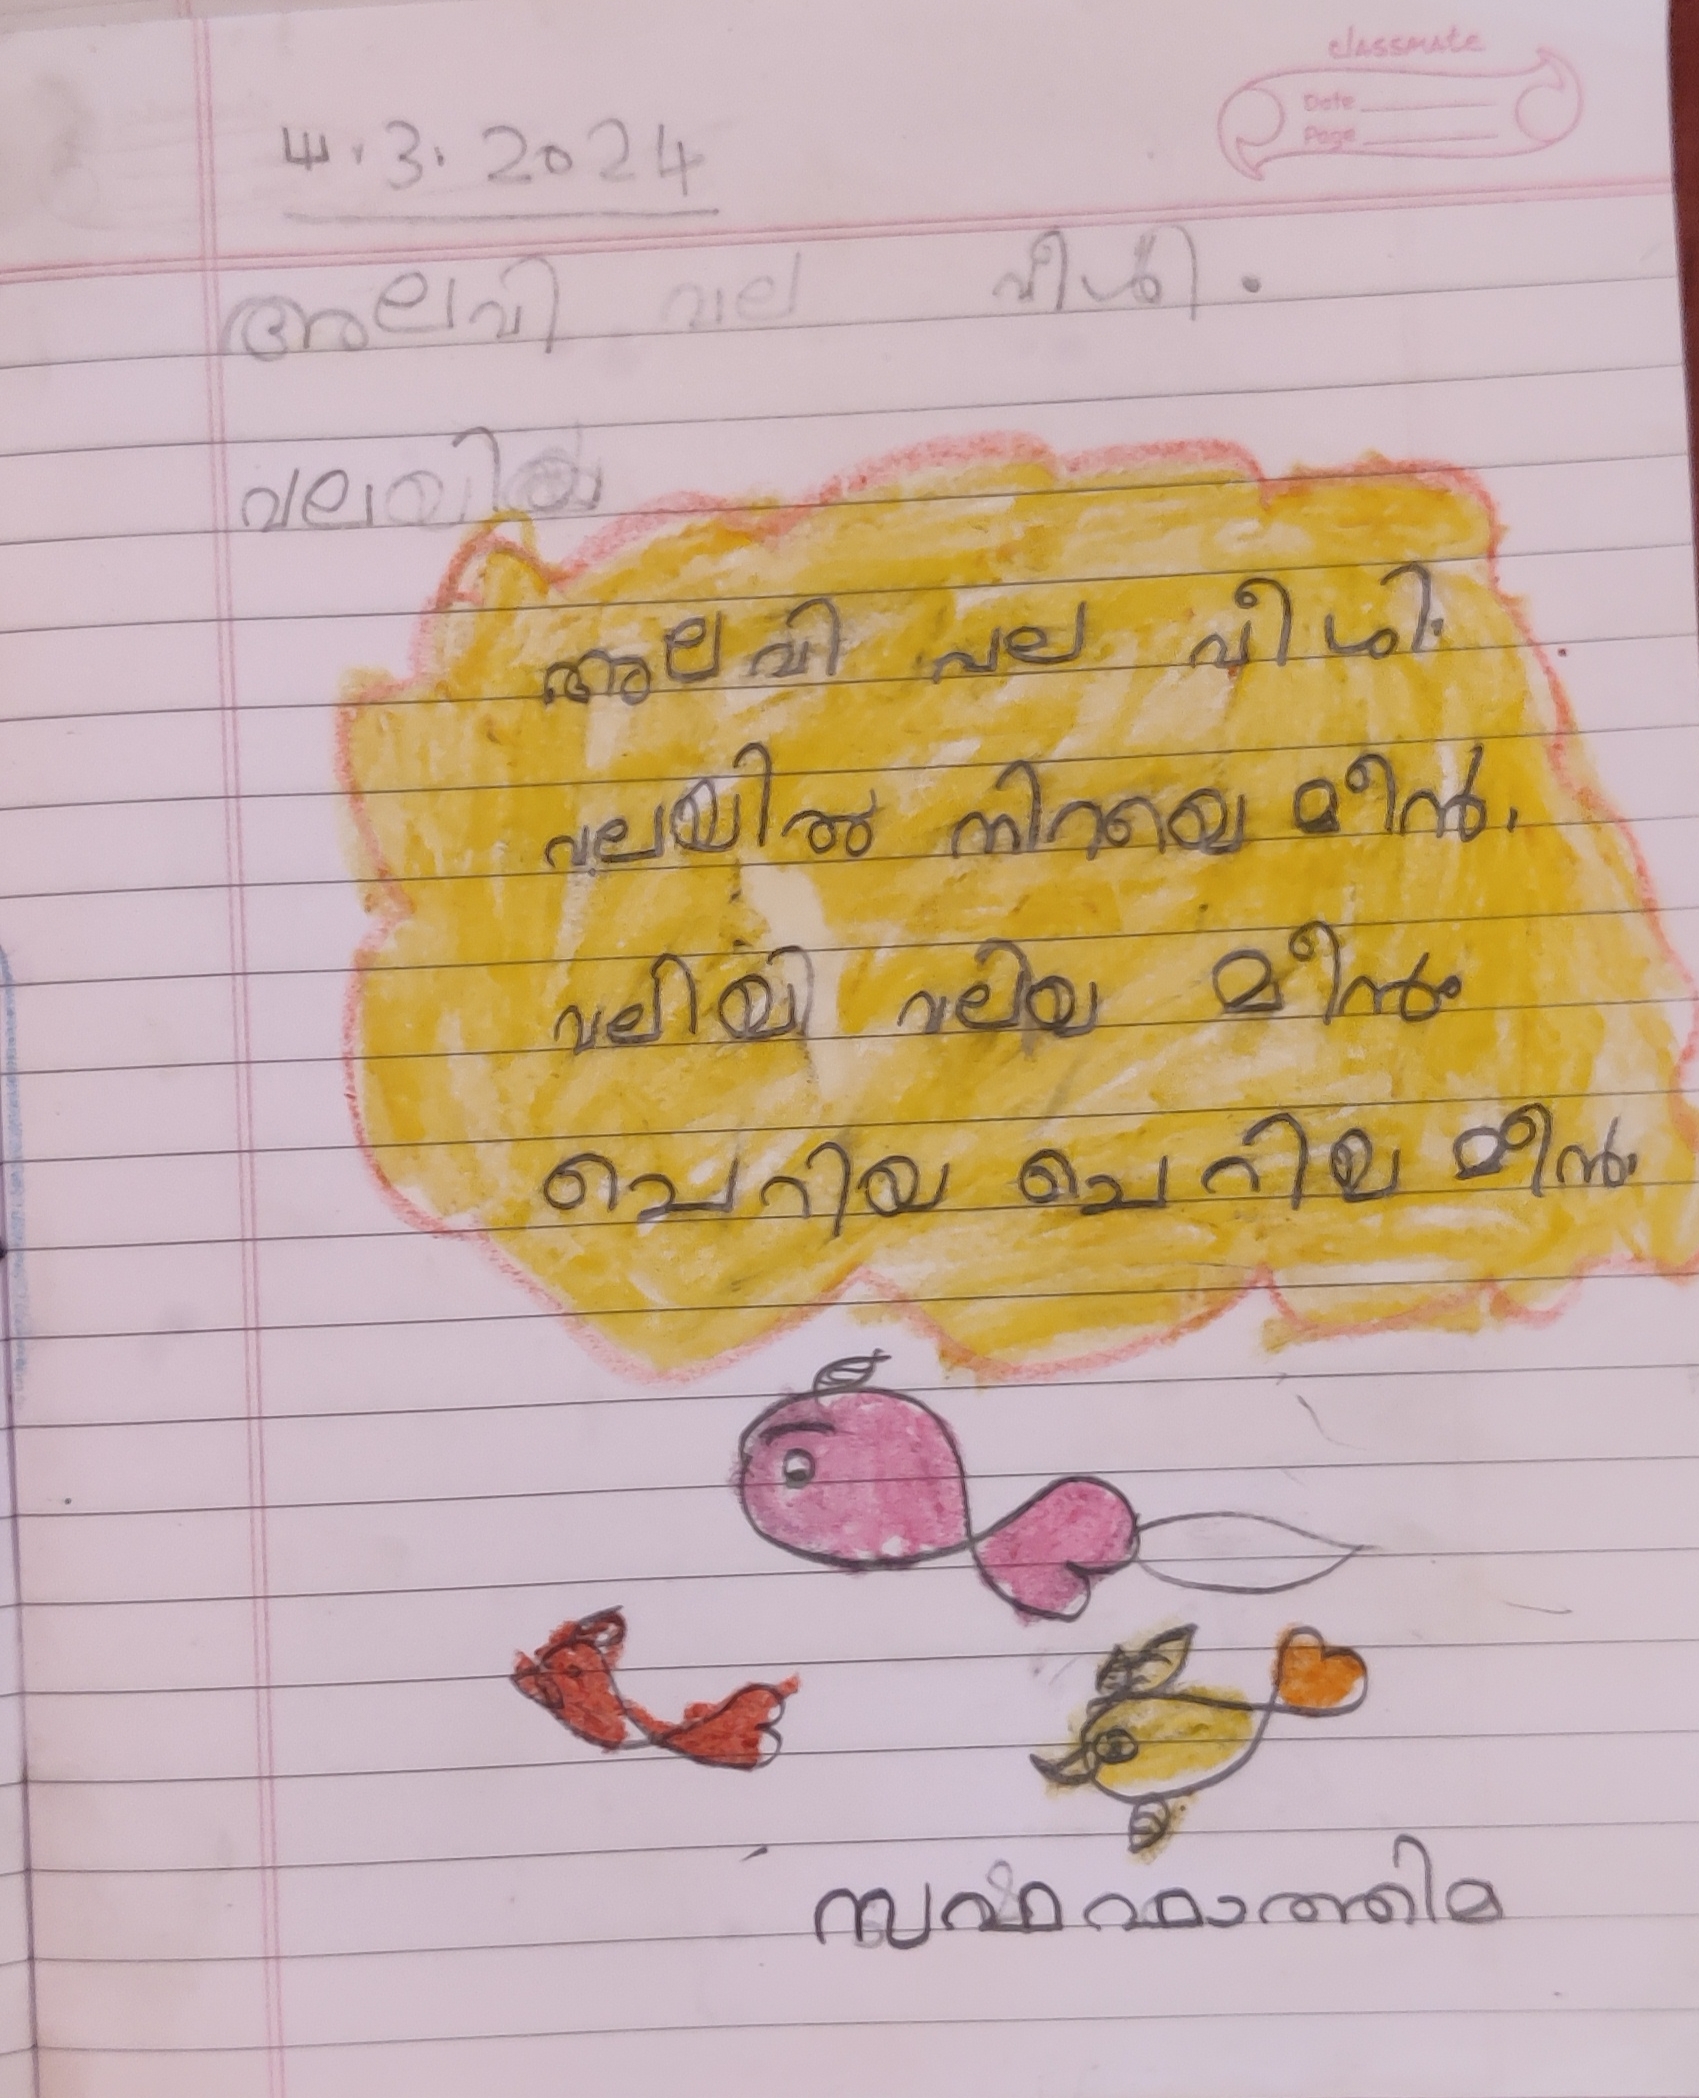 classmate
Date
Page
4.3.2024
അലവി വല വീശി.
വലയിയ
അലവി വല വീശി.
വലയിൽ നിറയെ മീൻ.
വലിയി വലിയ മീൻ.
ചെറിയ ചെറിയ മീൻ.
സഫ ഫാത്തിമ